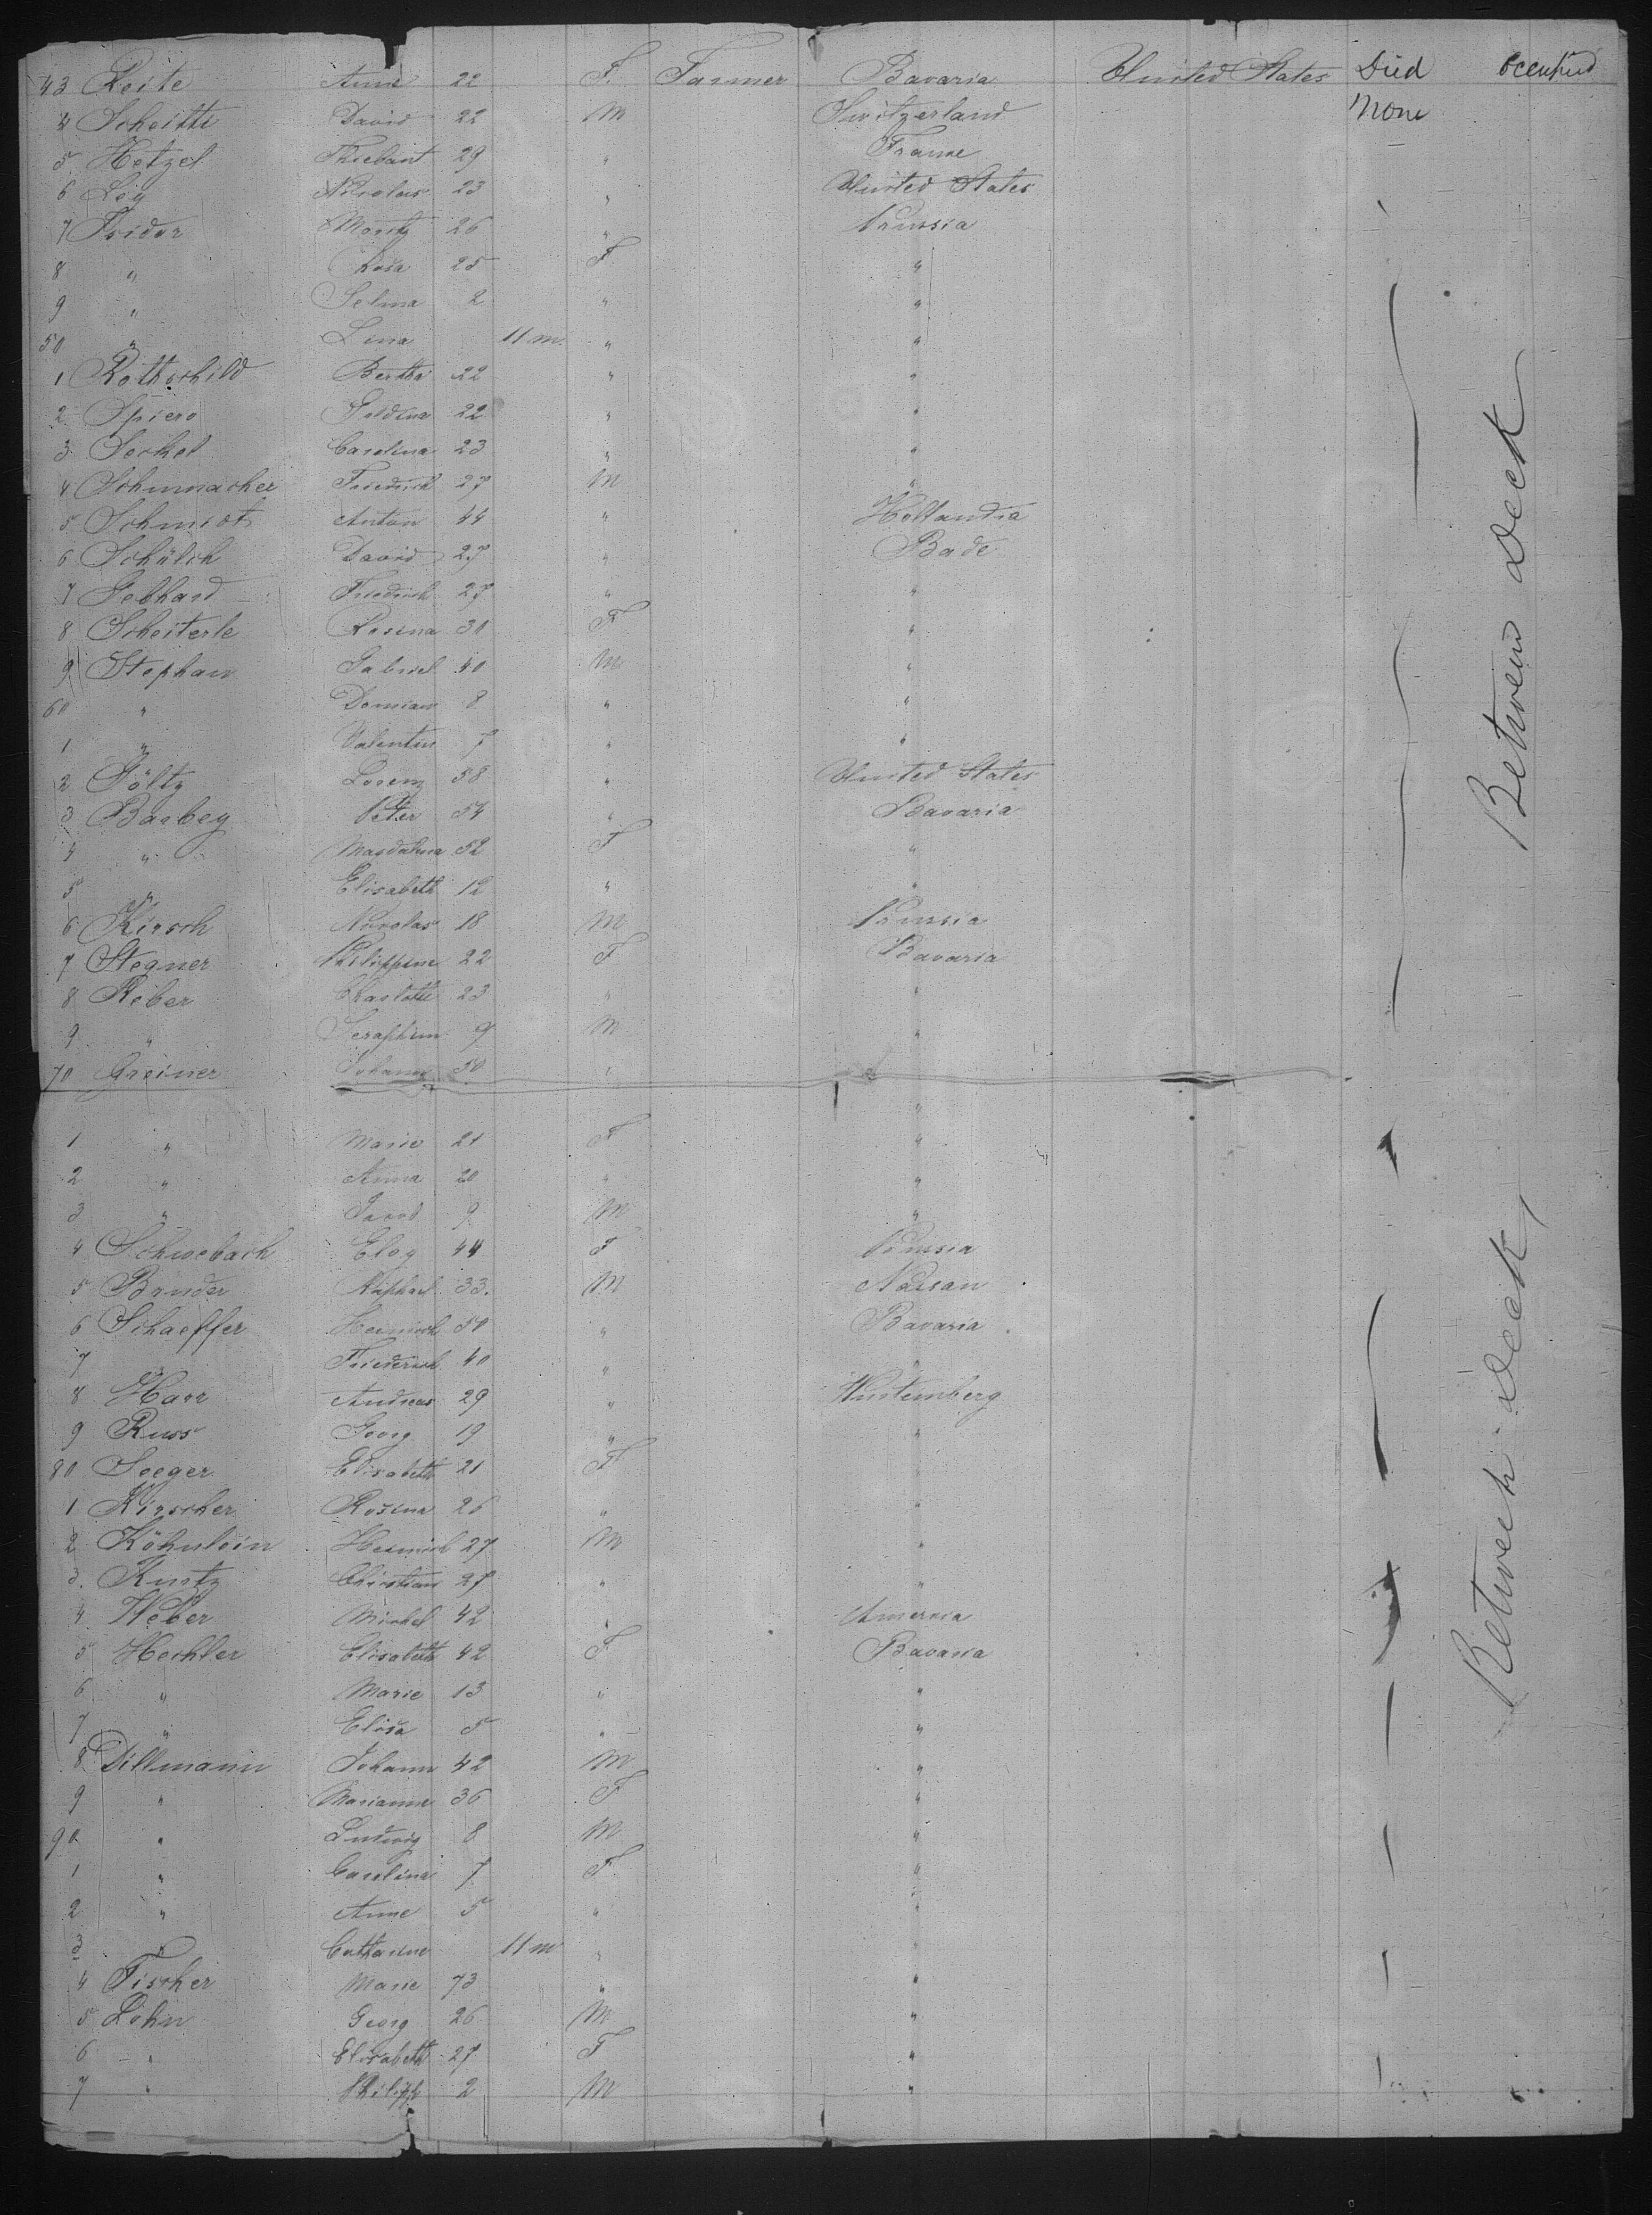 43 Reite Anna 22 F. Farmer Bavaria United States Died Occupied
4 Scheitti David 22 M Switzerland None
5 Hetzel Thiebaut 29 " France
6 Ley Nicolaus 23 " United States
7 Isidor Moritz 26 " Prussia
8 " Rosa 25 F "
9 " Selma 2 " "
50 " Lina 11 m. " "
1 Rothschild Bertha 22 " "
2 Spiero Goldina 22 " "
3 Seckel Carolina 23 " "
4 Schumacher Friedrich 27 M "
5 Schmidt Anton 44 " Hollandia
6 Schülch David 27 " Bade
7 Gebhard Friedrich 27 " "
8 Scheiterle Rosina 30 F "
9 Stephan Gabriel 40 M "
60 " Domian 8 " "
1 " Valentin 7 " "
2 Göltz Lorenz 58 " United States
3 Barbey Peter 54 " Bavaria
4 " Magdalena 52 F "
5 " Elisabeth 12 " "
6 Kirsch Nicolas 18 M Prussia
7 Stegner Philippine 22 F Bavaria
8 Reber Charlotte 23 " "
9 " Seraphim 9 M "
70 Greiner Johann 50 " "
1 " Marie 21 F "
2 " Anna 20 " "
3 " Jacob 9 M "
4 Schwebach Eloy 44 F Prussia
5 Bruder Raphael 33. M Nassau
6 Schaeffer Heinrich 54 " Bavaria
7 " Friederich 40 " "
8 Harr Andreas 29 " Wurtemberg
9 Russ Georg 19 " "
80 Seeger Elisabeth 21 F "
1 Kirscher Rosina 26 " "
2 Köhnlein Heinrich 27 M "
3. Kurtz Christian 27 " "
4 Weber Michel 42 " America
5 Hechler Elisabeth 42 F Bavaria
6 " Marie 13 " "
7 " Elisa 5 " "
8 Dillmann Johann 42 M "
9 " Marianne 36 F "
90 " Ludwig 8 M "
1 " Carolina 7 F "
2 " Anne 5 " "
3 " Catharine 11 m " "
4 Fischer Marie 73 " "
5 Lohn Georg 26 M "
6 " Elisabeth 27 F "
7 " Philipp 2 M "
Between deck
Between deck